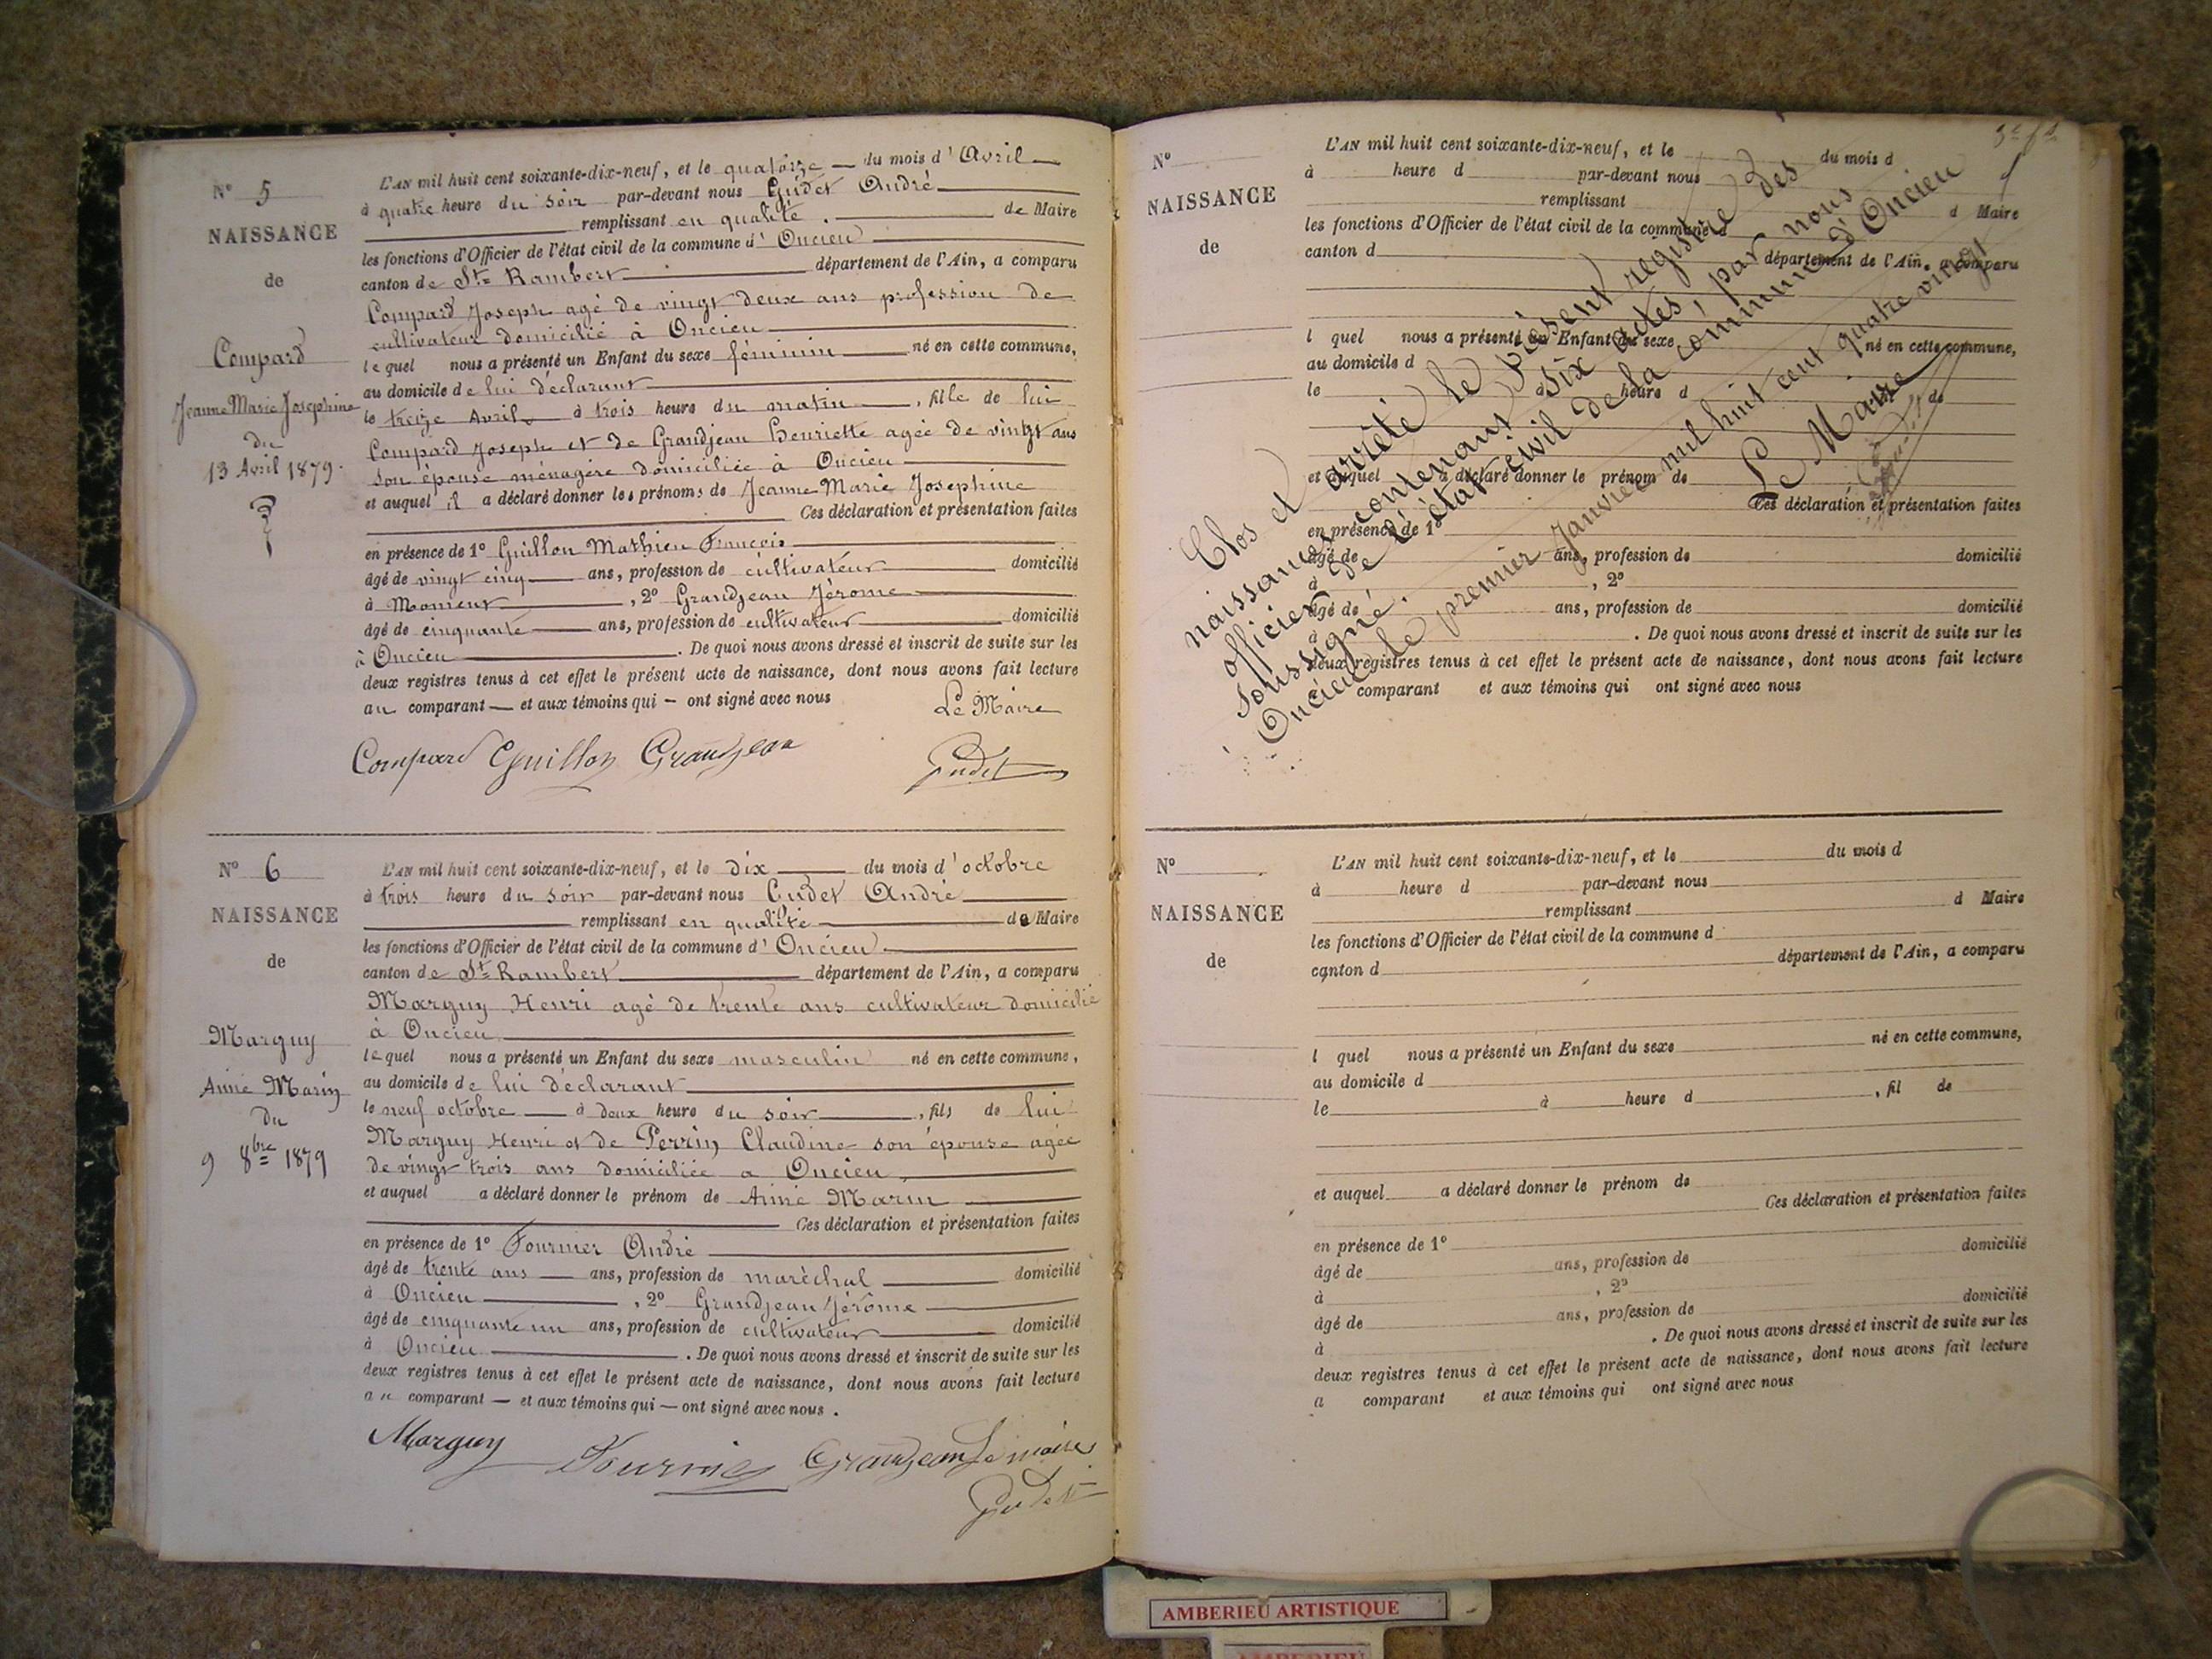 N° 5
NAISSANCE
de
Compard
Jeanne Marie Josephine
du
13 Avril 1879.
L'AN mil huit cent soixante-dix-neuf, et le quatorze — du mois d'Avril —
à quatre heure du soir par-devant nous Gudet André
remplissant en qualité . de Maire
les fonctions d'Officier de l'état civil de la commune d'Oncieu
canton de St Rambert département de l'Ain, a comparu
Compard Joseph agé de vingt deux ans profession de
cultivateur domicilié à Oncieu
lequel nous a présenté un Enfant du sexe féminin né en cette commune,
au domicile de lui déclarant
le treize Avril à trois heure du matin , fille de lui
Compard Joseph et de Grandjean Henriette agée de vingt ans
son épouse ménagère domiciliée à Oncieu
et auquel il a déclaré donner les prénoms de Jeanne Marie Josephine
Ces déclaration et présentation faites
en présence de 1° Guillon Mathieu François
âgé de vingt cinq ans, profession de cultivateur domicilié
à , 2° Grandjean Jérome
âgé de cinquante ans, profession de cultivateur domicilié
à Oncieu . De quoi nous avons dressé et inscrit de suite sur les
deux registres tenus à cet effet le présent acte de naissance, dont nous avons fait lecture
au comparant — et aux témoins qui — ont signé avec nous
Le Maire
Compard Guillon Grandjean
Gudet
N° 6
NAISSANCE
de
Marguy
Aimé Marin
du
9 8bre 1879
L'AN mil huit cent soixante-dix-neuf, et le dix du mois d'octobre
à trois heure du soir par-devant nous Gudet André
remplissant en qualité de Maire
les fonctions d'Officier de l'état civil de la commune d'Oncieu
canton de St Rambert département de l'Ain, a comparu
Marguy Henri agé de trente ans cultivateur domicilié
à Oncieu
lequel nous a présenté un Enfant du sexe masculin né en cette commune,
au domicile de lui déclarant
le neuf octobre à deux heure du soir , fils de lui
Marguy Henri et de Perrin Claudine son épouse agée
de vingt trois ans domiciliée a Oncieu
et auquel a déclaré donner le prénom de Aimé Marin
Ces déclaration et présentation faites
en présence de 1° Fournier André
âgé de trente ans ans, profession de maréchal domicilié
à Oncieu , 2° Grandjean Jérôme
âgé de cinquante un ans, profession de cultivateur domicilié
à Oncieu . De quoi nous avons dressé et inscrit de suite sur les
deux registres tenus à cet effet le présent acte de naissance, dont nous avons fait lecture
au comparant — et aux témoins qui — ont signé avec nous .
Marguy Fournier Grandjean Le maire
Gudet
N°
NAISSANCE
de
L'AN mil huit cent soixante-dix-neuf, et le du mois d
à heure d par-devant nous
remplissant d Maire
les fonctions d'Officier de l'état civil de la commune d
canton d département de l'Ain, a comparu
l quel nous a présenté un Enfant du sexe né en cette commune,
au domicile d
le à heure d de
et auquel a déclaré donner le prénom de
Ces déclaration et présentation faites
en présence de 1°
âgé de ans, profession de domicilié
à , 2°
âgé de ans, profession de domicilié
à . De quoi nous avons dressé et inscrit de suite sur les
deux registres tenus à cet effet le présent acte de naissance, dont nous avons fait lecture
comparant et aux témoins qui ont signé avec nous
Clos et arrêté le présent registre des
naissances contenant six actes, par nous
officier de l'état civil de la commune d'Oncieu
soussigné.
Oncieu le premier Janvier mil huit cent quatre vingt
Le Maire
N°
NAISSANCE
de
L'AN mil huit cent soixante-dix-neuf, et le du mois d
à heure d par-devant nous
remplissant d Maire
les fonctions d'Officier de l'état civil de la commune d
canton d département de l'Ain, a comparu
l quel nous a présenté un Enfant du sexe né en cette commune,
au domicile d
le à heure d , fil de
et auquel a déclaré donner le prénom de
Ces déclaration et présentation faites
en présence de 1°
âgé de ans, profession de domicilié
à , 2°
âgé de ans, profession de domicilié
à . De quoi nous avons dressé et inscrit de suite sur les
deux registres tenus à cet effet le présent acte de naissance, dont nous avons fait lecture
a comparant et aux témoins qui ont signé avec nous
AMBERIEU ARTISTIQUE
AMBERIEU